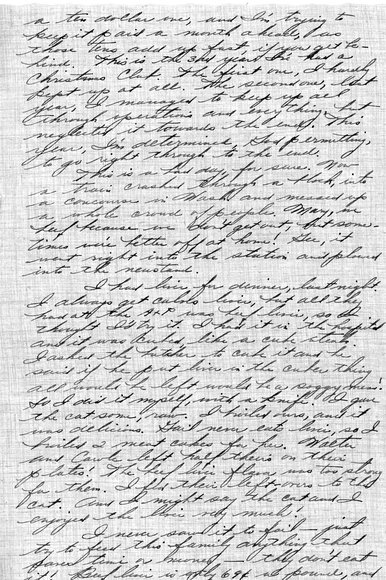 a ten dollar one, and I'm trying to
keep it paid a month ahead, as
those tens add up fast, if you get be-
hind. This is the 3rd year I've had a
Christmas Club. The first one, I hardly
kept up at all. The second one, last
year, I managed to keep up all
through operations and everything, but
neglected it towards the end. This
year, I'm determined, God permitting,
to go right through to the end.
This is a bad day, for sure. Now
a train crashed through a block, into
a concourse in Wash. and messed up
a whole crowd of people. Mary, we
because we don't get out, but some-
times we're better off at home! Gee, it
went right into the station and plowed
into the newsstand.
I had liver for dinner, last night.
I always get calves liver, but all they
had at the A&P was beef liver, so I
thought I'd try it. I had it in the hospital
and it was cubed, like a cube steak.
I asked the butcher to cube it and he
said if he put liver in the cuber thing
all would be left would be a soggy mess!
So I did it myself, with a knife. I gave
the cat some, raw. I broiled ours, and it
was delicious. Gail never eats liver, so I
broiled 2 meat cakes for her. Walter
and Carole left half theirs on their
plates! The beef liver flavor was too strong
for them. I fed their left-overs to the
cat. And I might say the cat and I
enjoyed the liver very much!
I never saw it to fail - just
try to feed this family anything that
saves time or money - they don't eat
it! Beef liver is only 69¢ a pound, and